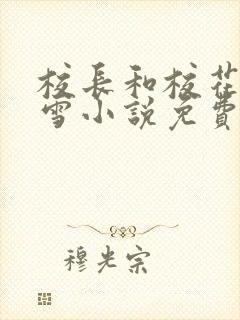 校長和校花
雪小說免費
穆光宗